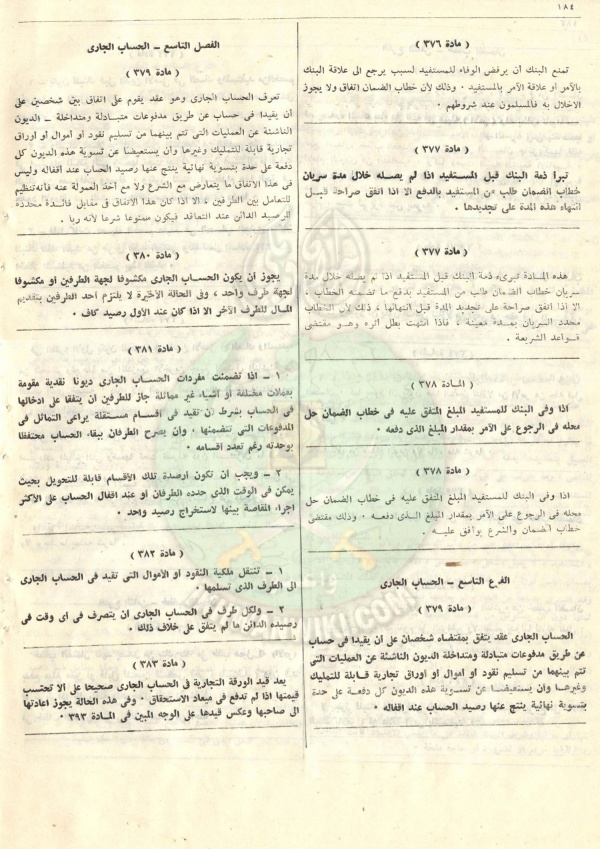 ١٨٤
( مادة ٣٧٦ )
تمنع البنك أن يرفض الوفاء للمستفيد لسبب يرجع الى علاقة البنك
بالآمر او علاقة الآمر بالمستفيد ٠ وذلك لأن خطاب الضمان اتفاق ولا يجوز
الاخلال به فالمسلمون عند شروطهم ٠
( مادة ٣٧٧ )
تبرأ ذمة البنك قبل المستفيد اذا لم يصله خلال مدة سريان
خطاب الضمان طلب من المستفيد بالدفع الا اذا اتفق صراحة قبل
انتهاء هذه المدة على تجديدها ٠
( مادة ٣٧٧ )
هذه المادة تبرىء ذمة البنك قبل المستفيد اذا لم يصله خلال مدة
سريان خطاب الضمان طلب من المستفيد بدفع ما تضمنه الخطاب ٠
الا اذا اتفق صراحة على تجديد المدة قبل انتهائها ، ذلك لأن الخطاب
محدد السريان بمدة معينة ٠ فاذا انتهت بطل أثره وهو مقتضى
قواعد الشريعة ٠
( المادة ٣٧٨ )
اذا وفى البنك للمستفيد المبلغ المتفق عليه فى خطاب الضمان حل
محله فى الرجوع على الآمر بمقدار المبلغ الذى دفعه ٠
( مادة ٣٧٨ )
اذا وفى البنك للمستفيد المبلغ المتفق عليه فى خطاب الضمان حل
محله فى الرجوع على الآمر بمقدار المبلغ الذى دفعه ٠ وذلك مقتضى
خطاب الضمان والشرع يوافق عليه ٠
الفرع التاسع – الحساب الجارى
( مادة ٣٧٩ )
الحساب الجارى عقد يتفق بمقتضاه شخصان على ان يقيدا فى حساب
عن طريق مدفوعات متبادلة ومتداخلة الديون الناشئة عن العمليات التى
تتم بينهما من تسليم نقود او اموال او اوراق تجارية قابلة للتمليك
وغيرها وان يستعيضا عن تسوية هذه الديون كل دفعة على حدة
بتسوية نهائية ينتج عنها رصيد الحساب عند اقفاله ٠
الفصل التاسع – الحساب الجارى
( مادة ٣٧٩ )
تعرف الحساب الجارى وهو عقد يقوم على اتفاق بين شخصين على
أن يقيدا فى حساب عن طريق مدفوعات متبادلة ومتداخلة – الديون
الناشئة عن العمليات التى تتم بينهما من تسليم نقود أو أموال أو أوراق
تجارية قابلة للتمليك وغيرها وأن يستعيضا عن تسوية هذه الديون كل
دفعة على حدة بتسوية نهائية ينتج عنها رصيد الحساب عند اقفاله وليس
فى هذا الاتفاق ما يتعارض مع الشرع ولا مع أخذ العمولة عنه فأنه تنظيم
للتعامل بين الطرفين ، الا اذا كان هذا الاتفاق فى مقابل فائدة محددة
للرصيد الدائن عند التعاقد فيكون ممنوعا شرعا لأنه ربا ٠
( مادة ٣٨٠ )
يجوز أن يكون الحساب الجارى مكشوفا لجهة الطرفين او مكشوفا
لجهة طرف واحد ، وفى الحالة الأخيرة لا يلتزم احد الطرفين بتقديم
المال للطرف الآخر الا اذا كان عند الأول رصيد كاف ٠
( مادة ٣٨١ )
١ – اذا تضمنت مفردات الحساب الجارى ديونا نقدية مقومة
بعملات مختلفة أو أشياء غير متماثلة جاز للطرفين ان يتفقا على ادخالها
فى الحساب بشرط ان تقيد فى اقسام مستقلة يراعى التماثل فى
المدفوعات التى تتضمنها ، وأن يصرح الطرفان ببقاء الحساب محتفظا
بوحدته رغم تعدد اقسامه ٠
٢ – ويجب ان تكون أرصدة تلك الأقسام قابلة للتحويل بحيث
يمكن فى الوقت الذى حدده الطرفان او عند اقفال الحساب على الأكثر
اجراء المقاصة بينها لاستخراج رصيد واحد ٠
( مادة ٣٨٢ )
١ – تنتقل ملكية النقود او الأموال التى تقيد فى الحساب الجارى
الى الطرف الذى تسلمها ٠
٢ – ولكل طرف فى الحساب الجارى ان يتصرف فى اى وقت فى
رصيده الدائن ما لم يتفق على خلاف ذلك ٠
( مادة ٣٨٣ )
يعد قيد الورقة التجارية فى الحساب الجارى صحيحا على ألا تحتسب
قيمتها اذا لم تدفع فى ميعاد الاستحقاق ٠ وفى هذه الحالة يجوز اعادتها
الى صاحبها وعكس قيدها على الوجه المبين فى المادة ٣٩٣ ٠